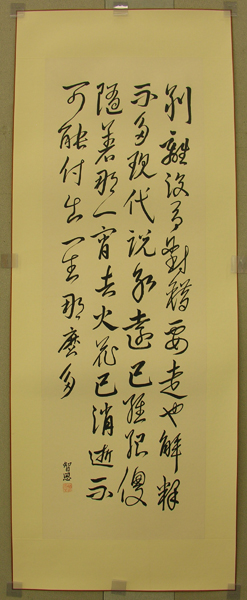 別離沒有對錯要走也解釋
不多現代說永遠已經很傻
隨著那一宵去火花已消逝不
可能付出一生那麼多
智恩